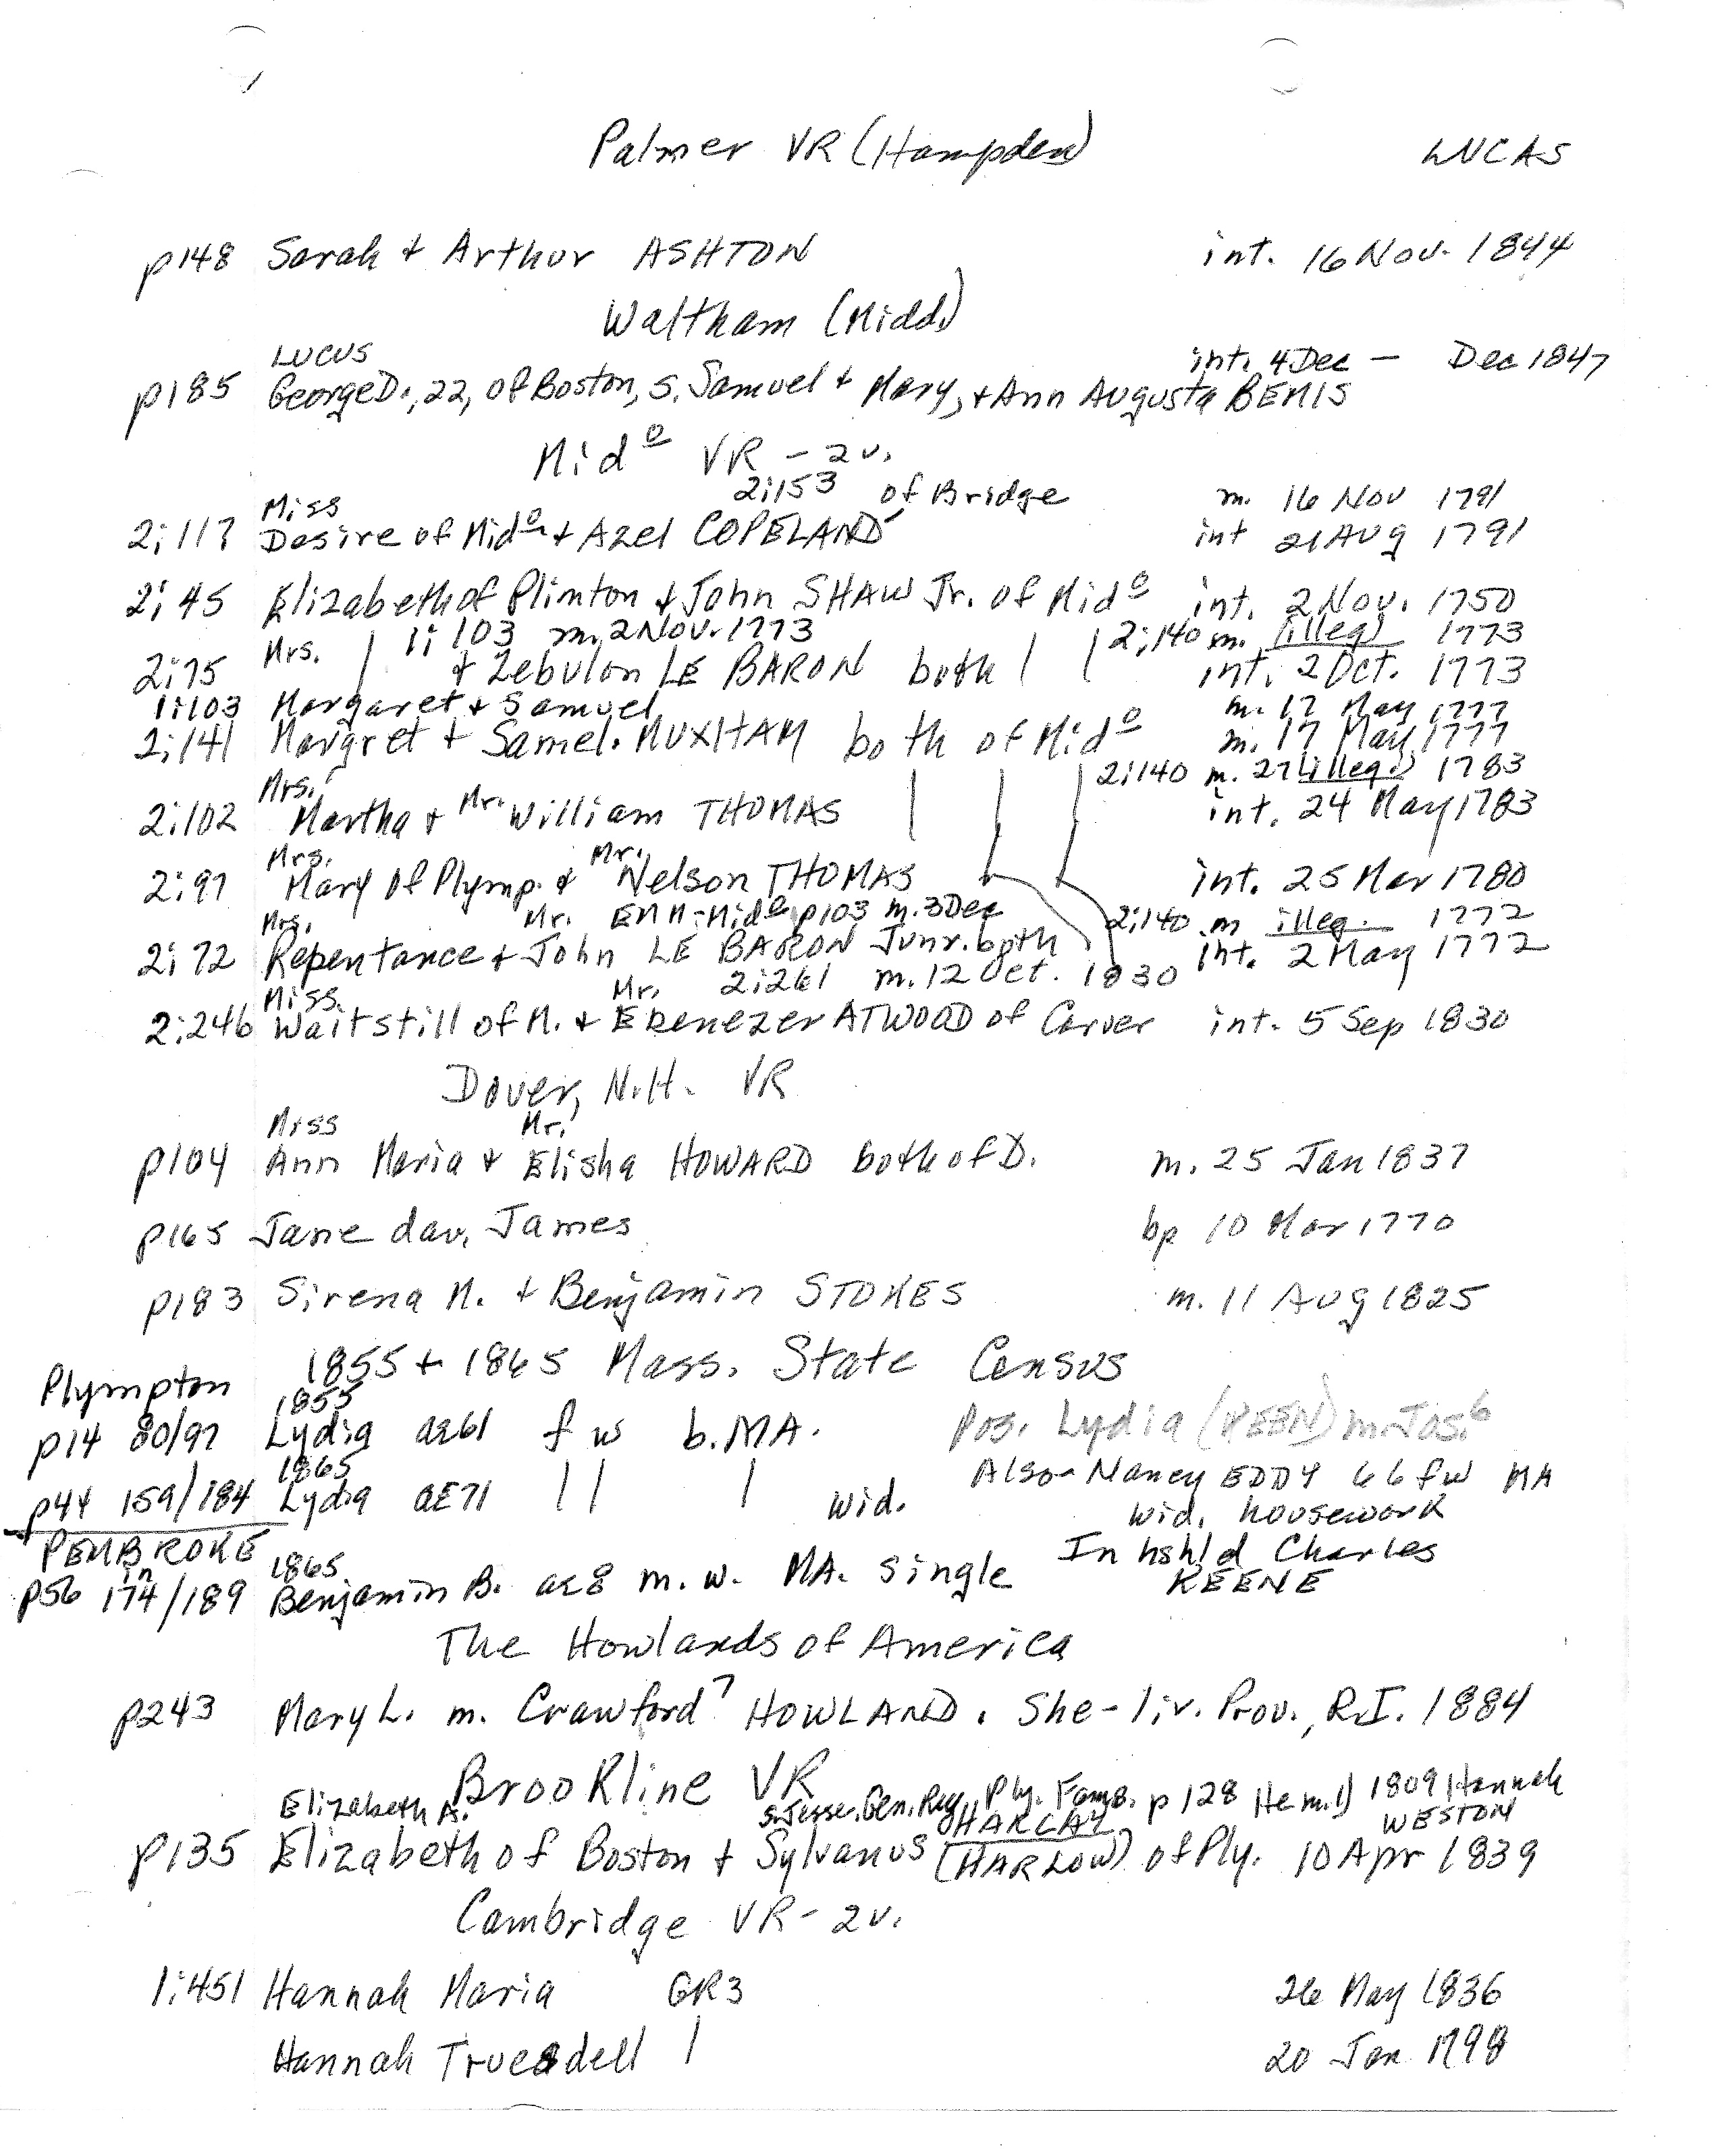 Palmer VR (Hampden) LUCAS
p148 Sarah + Arthur ASHTON int. 16 Nov. 1844
Waltham (Midd.)
LUCUS int. 4 Dec — Dec 1847
p185 George D., 22, of Boston, s. Samuel + Mary, + Ann Augusta BEMIS
Mido VR - 2v.
Miss 2:153 of Bridge m. 16 Nov 1791
2:117 Desire of Mido + Azel COPELAND int 21 Aug 1791
2:45 Elizabeth of Plimton + John SHAW Jr. of Mido int. 2 Nov. 1750
Mrs. | 1:103 m. 2 Nov. 1773 | | 2:140 m. (illeg) 1773
2:75 + Zebulon LE BARON both int. 2 Oct. 1773
1:103 Margaret + Samuel m. 17 May 1777
2:141 Margret + Samel. MUXHAM both of Mido m. 17 May 1777
Mrs. | | | 2:140 m. 27 (illeg.) 1783
2:102 Martha + Mr. William THOMAS int. 24 May 1783
Mrs. Mr.
2:97 Mary of Plymp. + Nelson THOMAS int. 25 Mar 1780
Mrs. Mr. EMM-Mido p103 m. 3 Dec 2:140 m illeg. 1772
2:72 Repentance + John LE BARON Junr. both int. 2 May 1772
Miss. Mr. 2:261 m. 12 Oct. 1830
2:246 Waitstill of M. + Ebenezer ATWOOD of Carver int. 5 Sep 1830
Dover, N.H. VR
Miss Mr.
p104 Ann Maria + Elisha HOWARD both of D. m. 25 Jan 1837
p165 Jane dau. James bp 10 Mar 1770
p183 Sirena M. + Benjamin STOKES m. 11 Aug 1825
1855 + 1865 Mass. State Census
Plympton 1855
p14 80/97 Lydia ae61 f w b. MA. Pos. Lydia (KEEN) m. Jos.6
1865 Also - Nancy EDDY 66 f w MA
p44 159/184 Lydia ae71 | | | wid. wid. housework
PEMBROKE 1865 In hshld Charles
in
p56 174/189 Benjamin B. ae8 m. w. MA. single KEENE
The Howlands of America
p243 Mary L. m. Crawford7 HOWLAND. She - liv. Prov., R.I. 1884
Brookline VR
Elizabeth A. s. Jesse. Gen. Reg. Ply. Fams. p 128 He m. 1) 1809 Hannah
HARLAY WESTON
p135 Elizabeth of Boston + Sylvanus (HARLOW) of Ply. 10 Apr 1839
Cambridge VR - 2v.
1:451 Hannah Maria GR3 26 May 1836
Hannah Truesdell | 20 Jan 1798